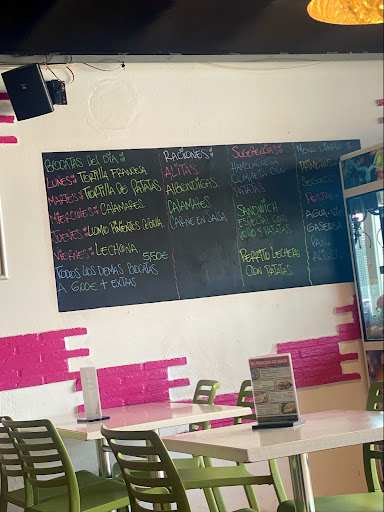 BOCATAS DEL DIA
LUNES: TORTILLA FRANCESA
MARTES: TORTILLA DE PATATAS
MIERCOLES: CALAMARES
JUEVES: LOMO PIMIENTOS CEBOLLA
VIERNES: LECHONA
5'50€
TODOS LOS DEMAS BOCATAS
A 6'00€ + EXTRAS
RACIONES
ALITAS
ALBONDIGAS
CALAMARES
CARNE EN SALSA
SUGERENCIAS
HAMBURGUESA
COMPLETA CON
PATATAS
SANDWICH
ESPECIAL CON
HUEVO Y PATATAS
PERRITO LECHERO
CON PATATAS
MENU
PRIMERO
SEGUNDO
POSTRE
AGUA-VINO
GASEOSA
PAN